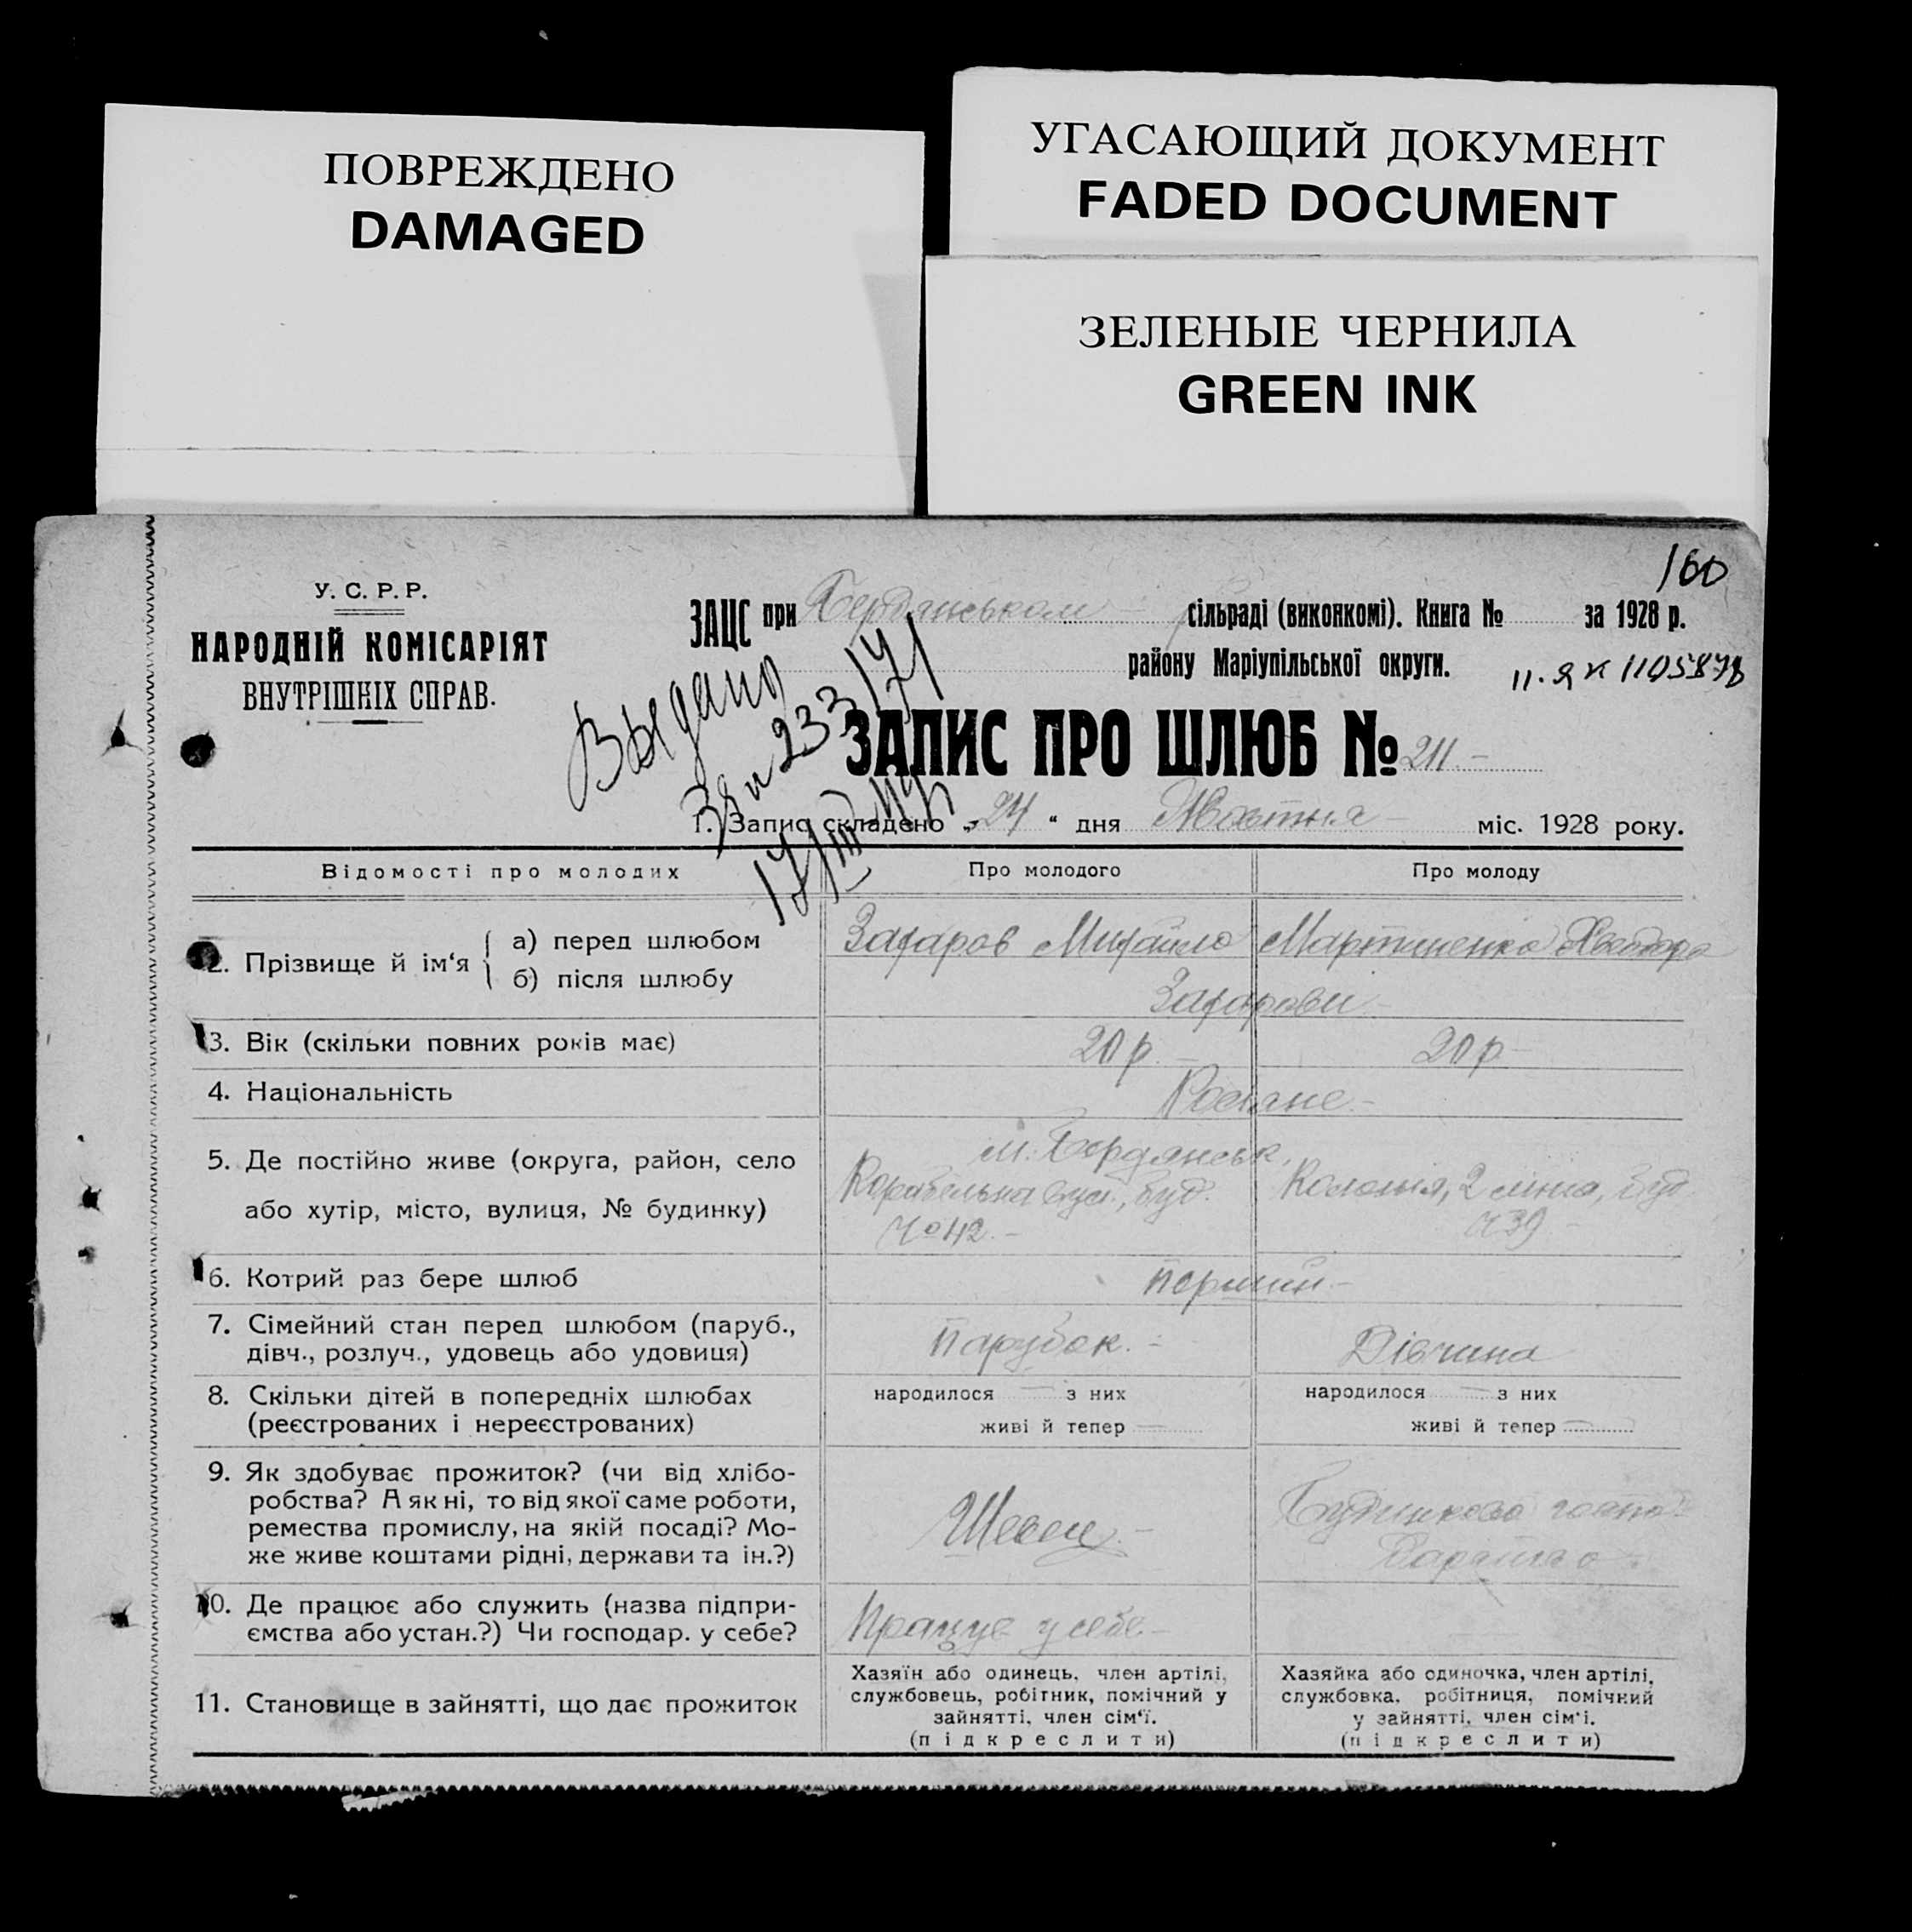 ПОВРЕЖДЕНО
DAMAGED
УГАСАЮЩИЙ ДОКУМЕНТ
FADED DOCUMENT
ЗЕЛЕНЫЕ ЧЕРНИЛА
GREEN INK
160
У. С. Р. Р.
НАРОДНІЙ КОМІСАРІЯТ
ВНУТРІШНІХ СПРАВ.
ЗАЦС при Бердянськом сільраді (виконкомі). Книга № за 1928 р.
району Маріупільської округи.
II-ЯК 1105878
Выдано
233/71
ЗАПИС ПРО ШЛЮБ № 211.-
1. Запис складено „24“ дня Жовтня міс. 1928 року.
Відомості про молодих
Про молодого
Про молоду
2. Прізвище й ім‘я
а) перед шлюбом
Захаров Михайло
Мартиненко Хведора
б) після шлюбу
Захарови
3. Вік (скільки повних років має)
20 р.
20 р.
4. Національність
Росіяне.-
5. Де постійно живе (округа, район, село
або хутір, місто, вулиця, № будинку)
м. Бердянськ,
Корабельна вул., буд.
№ 42.-
Колонія, 2 лінія, буд
№ 39
6. Котрий раз бере шлюб
перший.-
7. Сімейний стан перед шлюбом (паруб.,
дівч., розлуч., удовець або удовиця)
парубок.-
Дівчина
8. Скільки дітей в попередніх шлюбах
(реєстрованих і нереєстрованих)
народилося — з них
живі й тепер —
народилося — з них
живі й тепер —
9. Як здобуває прожиток? (чи від хлібо-
робства? А як ні, то від якої саме роботи,
ремества промислу, на якій посаді? Мо-
же живе коштами рідні, держави та ін.?)
Швець.-
10. Де працює або служить (назва підпри-
ємства або устан.?) Чи господар. у себе?
Працює у себе-
11. Становище в зайнятті, що дає прожиток
Хазяїн або одинець, член артілі,
службовець, робітник, помічний у
зайнятті, член сім‘ї.
(підкреслити)
Хазяйка або одиночка, член артілі,
службовка, робітниця, помічкий
у зайнятті, член сім‘і.
(підкреслити)